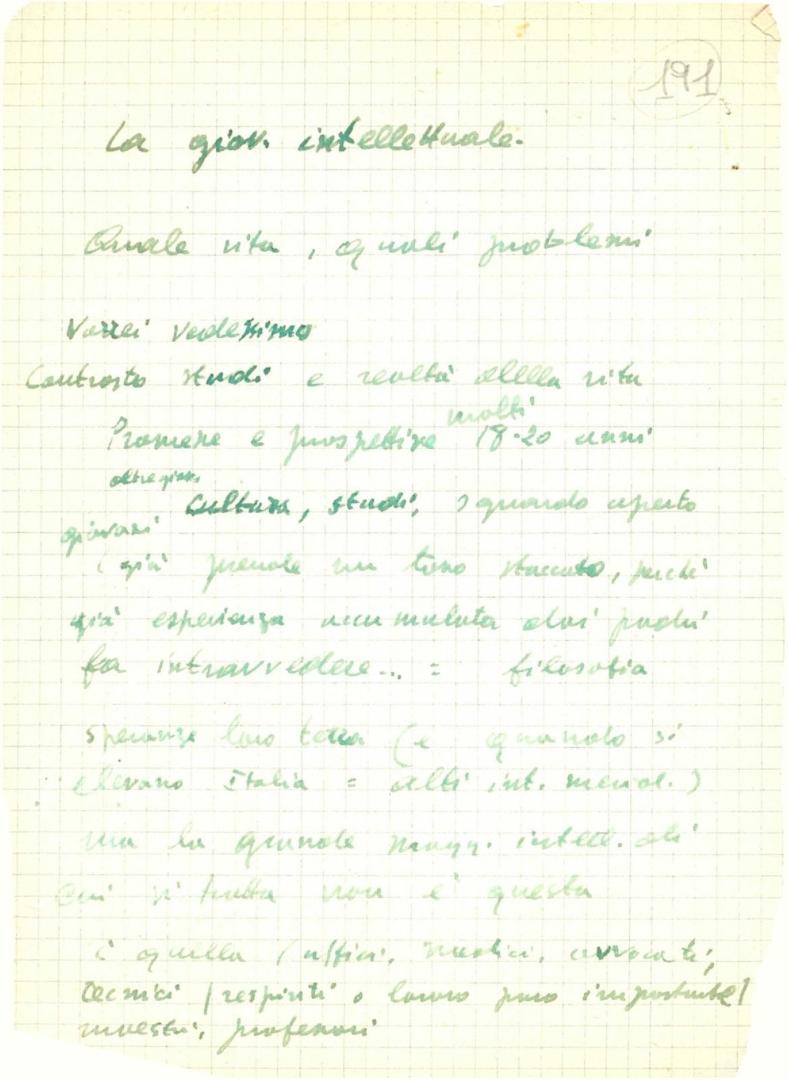 191
La giov. intellettuale.
Quale vita, quali problemi
Vorrei vedessimo
Contrasto studi e realtà della vita
molti
Promesse e prospettive 18-20 anni
oltre
giovani cultura, studi, sguardo aperto
(già prende un tono staccato, perché
già esperienza accumulata dai padri
fa intravvedere... = filosofia
speranze loro terra (e quando si
elevano Italia = alti int. merid.)
ma la grande magg. intell. di
cui si tratta non è questa
è quella (uffici, medici, avvocati,
tecnici (respinti o lavoro poco importante)
maestri, professori